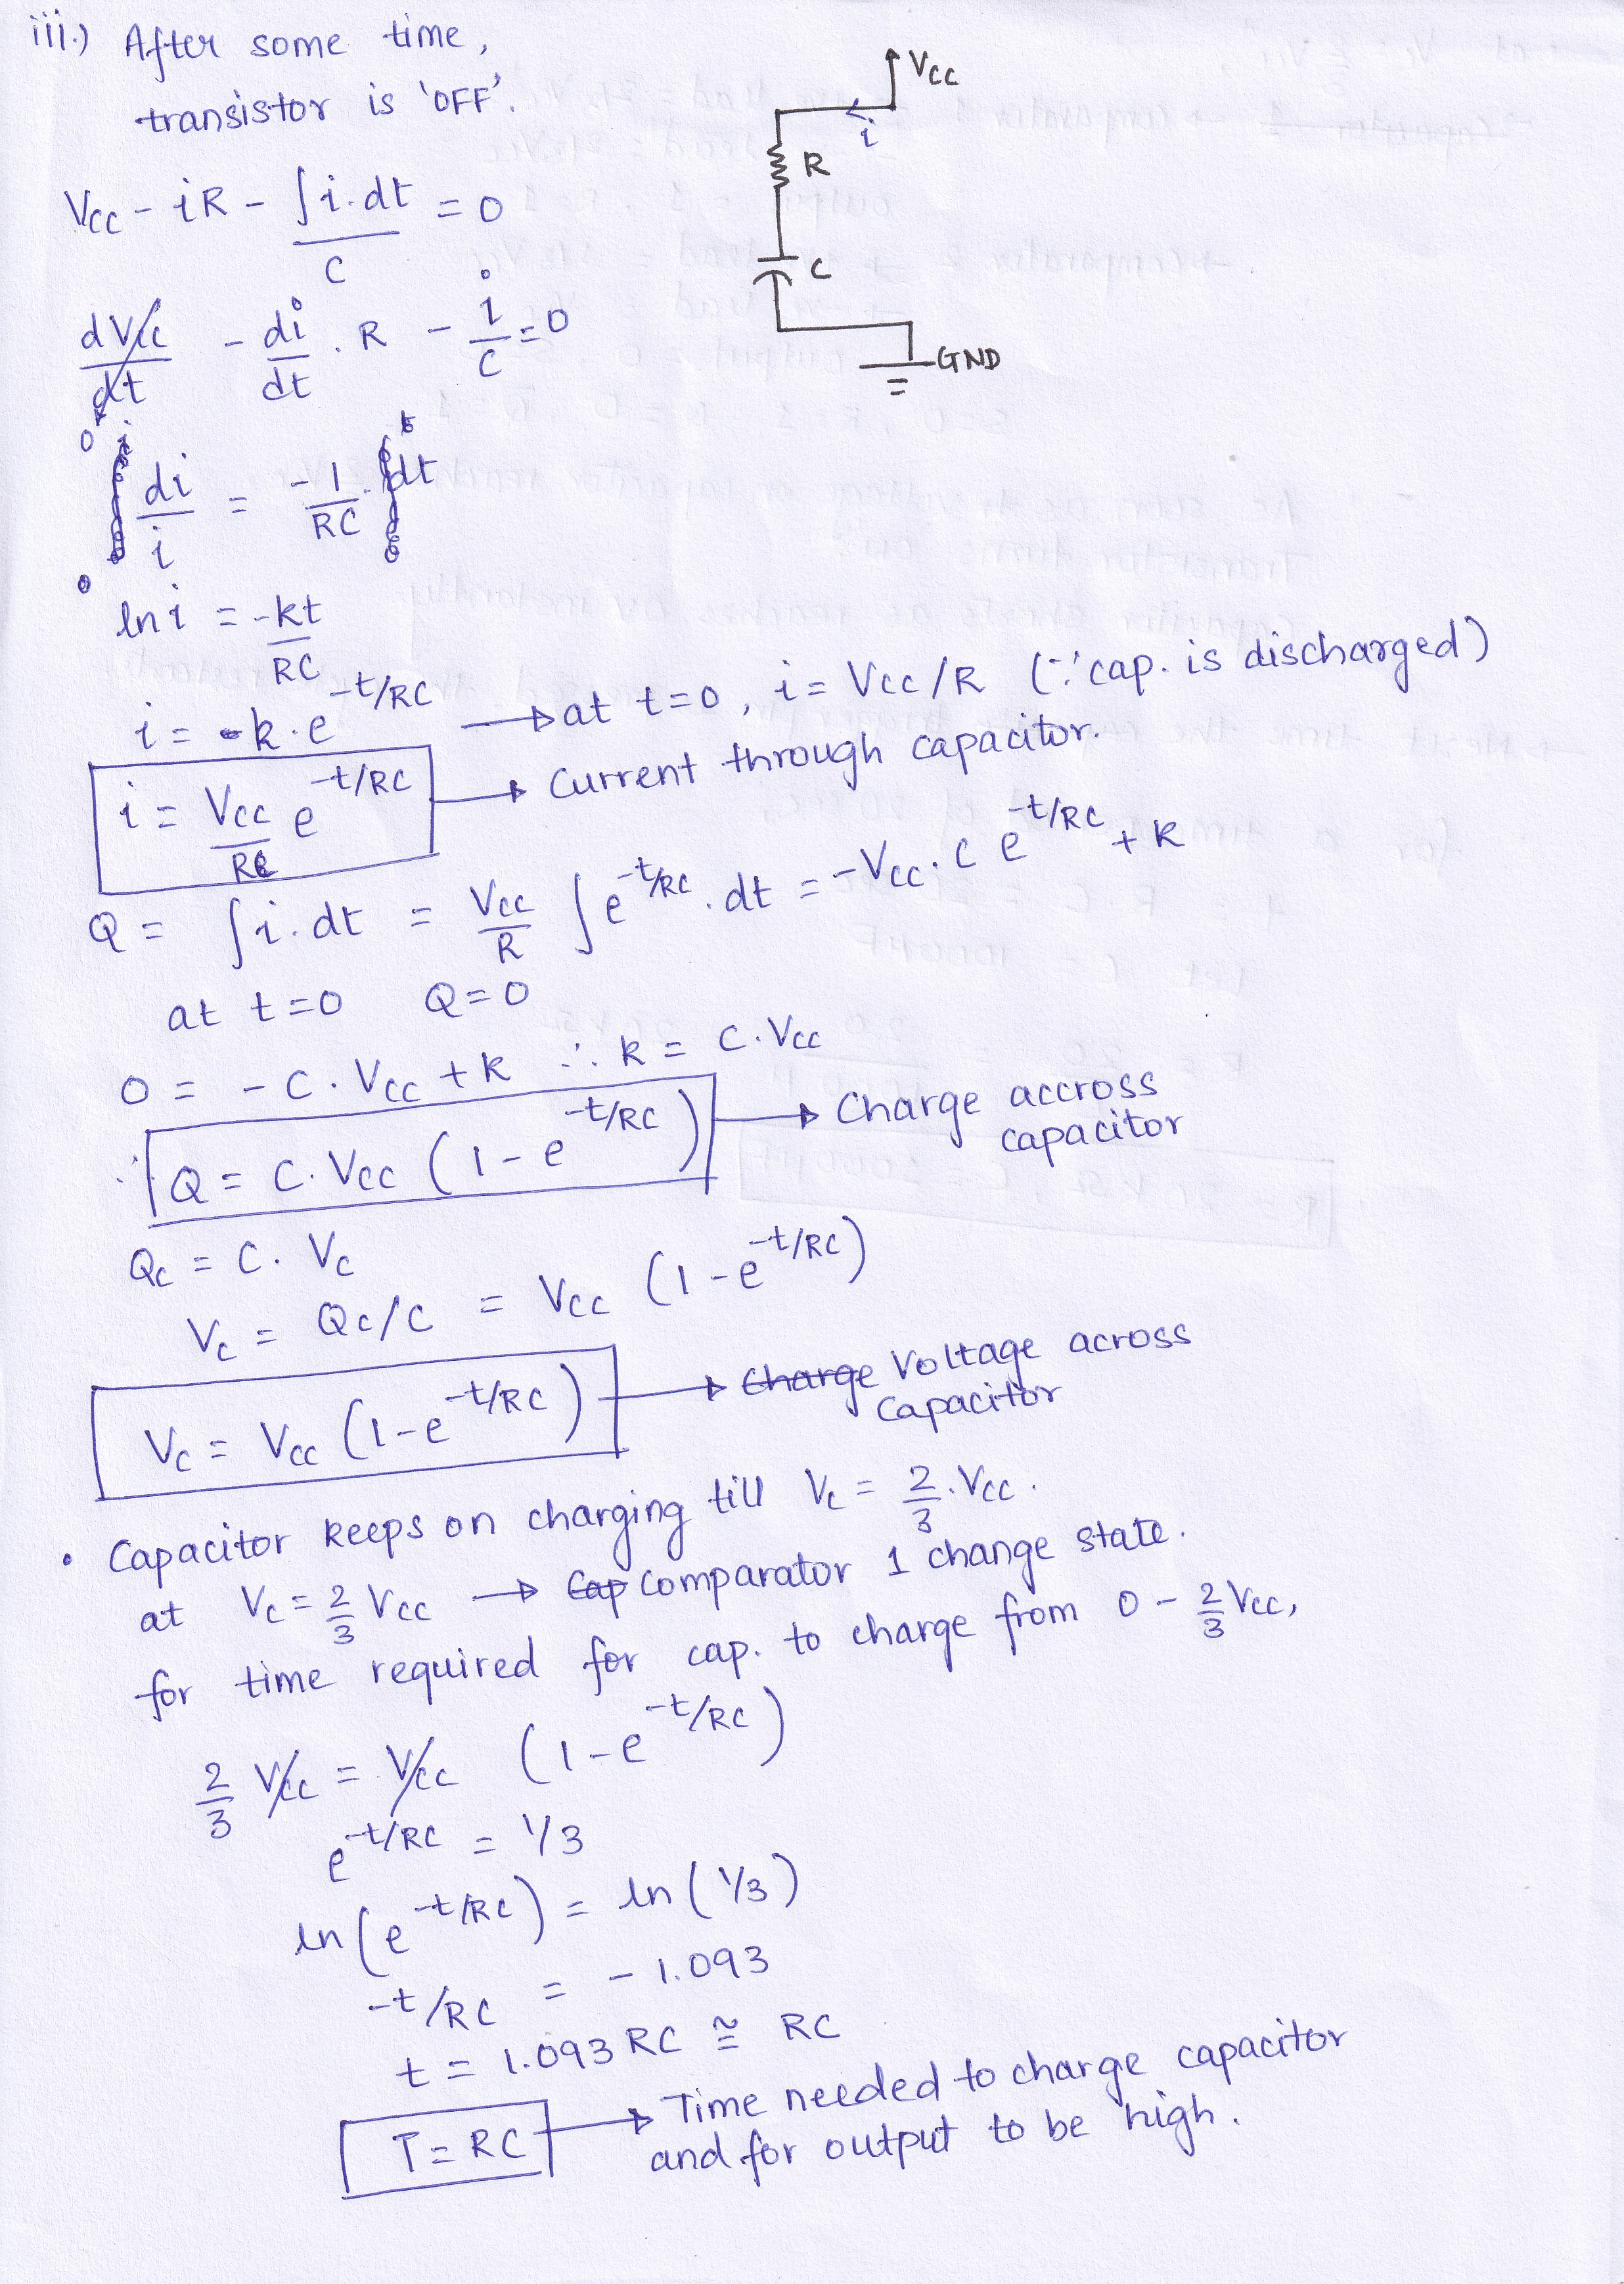 iii.) After some time,
transistor is 'OFF'.
Vcc
i
R
C
GND
Vcc - iR - ∫i.dt/C = 0
dVcc/dt - di/dt . R - i/C = 0
0
∫ di/i = -1/RC . ∫dt
ln i = -kt/RC
i = k.e^-t/RC → at t=0, i = Vcc/R (∵ cap. is discharged)
i = Vcc/R e^-t/RC → Current through capacitor.
Q = ∫i.dt = Vcc/R ∫e^-t/RC . dt = -Vcc . C e^-t/RC + k
at t=0 Q=0
0 = - C . Vcc + k ∴ k = C.Vcc
∴ Q = C.Vcc (1 - e^-t/RC) → Charge accross
capacitor
Qc = C . Vc
Vc = Qc/C = Vcc (1 - e^-t/RC)
Vc = Vcc (1 - e^-t/RC) → Charge Voltage across
capacitor
• Capacitor keeps on charging till Vc = 2/3 . Vcc .
at Vc = 2/3 Vcc → Cap comparator 1 change state.
for time required for cap. to charge from 0 - 2/3 Vcc,
2/3 Vcc = Vcc (1 - e^-t/RC)
e^-t/RC = 1/3
ln(e^-t/RC) = ln(1/3)
-t/RC = - 1.093
t = 1.093 RC ≅ RC
T = RC → Time needed to charge capacitor
and for output to be high.